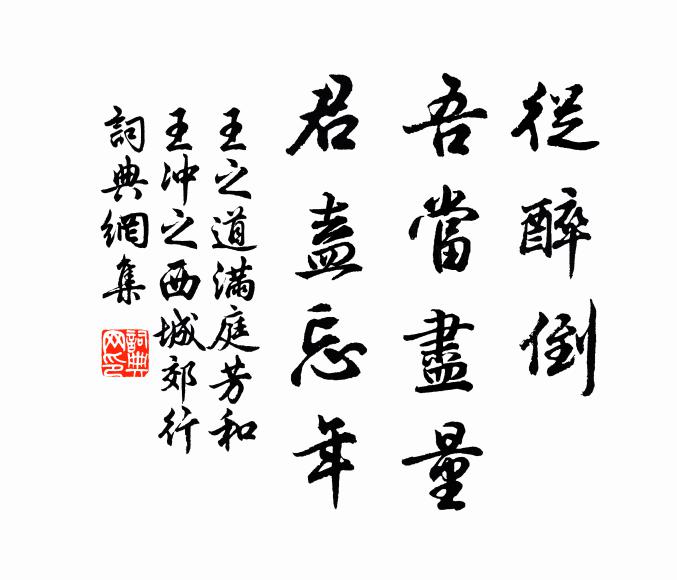 從醉倒
吾當盡量
君盍忘年
王之道滿庭芳和
王冲之西城郊行
詞典網集
詞典
网印